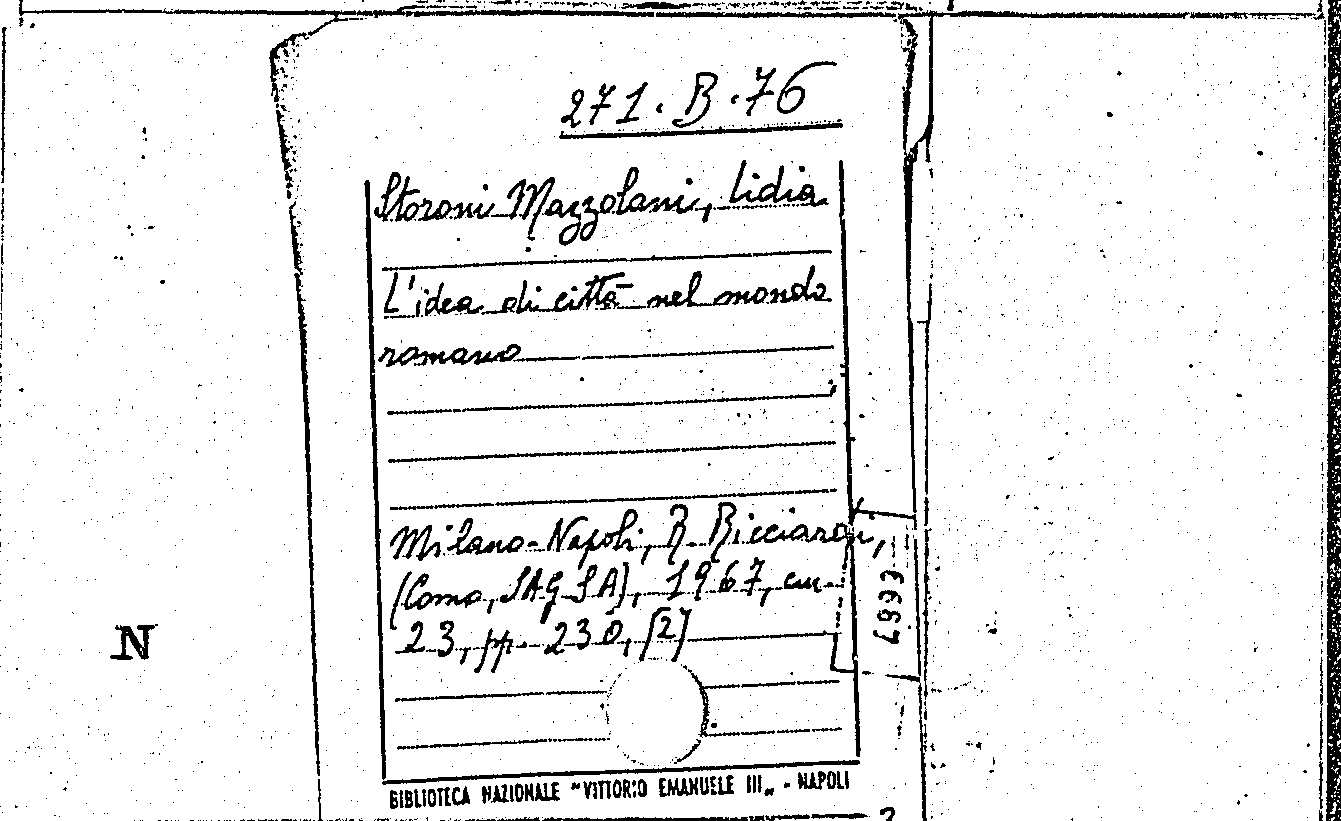 271.B.76
Storoni Mazzolani, Lidia
L'idea di città nel mondo
romano
Milano-Napoli, R. Ricciardi,
(Como, SAGSA), 1967, cm.
23, pp. 230, [2]
N
BIBLIOTECA NAZIONALE "VITTORIO EMANUELE III„ - NAPOLI